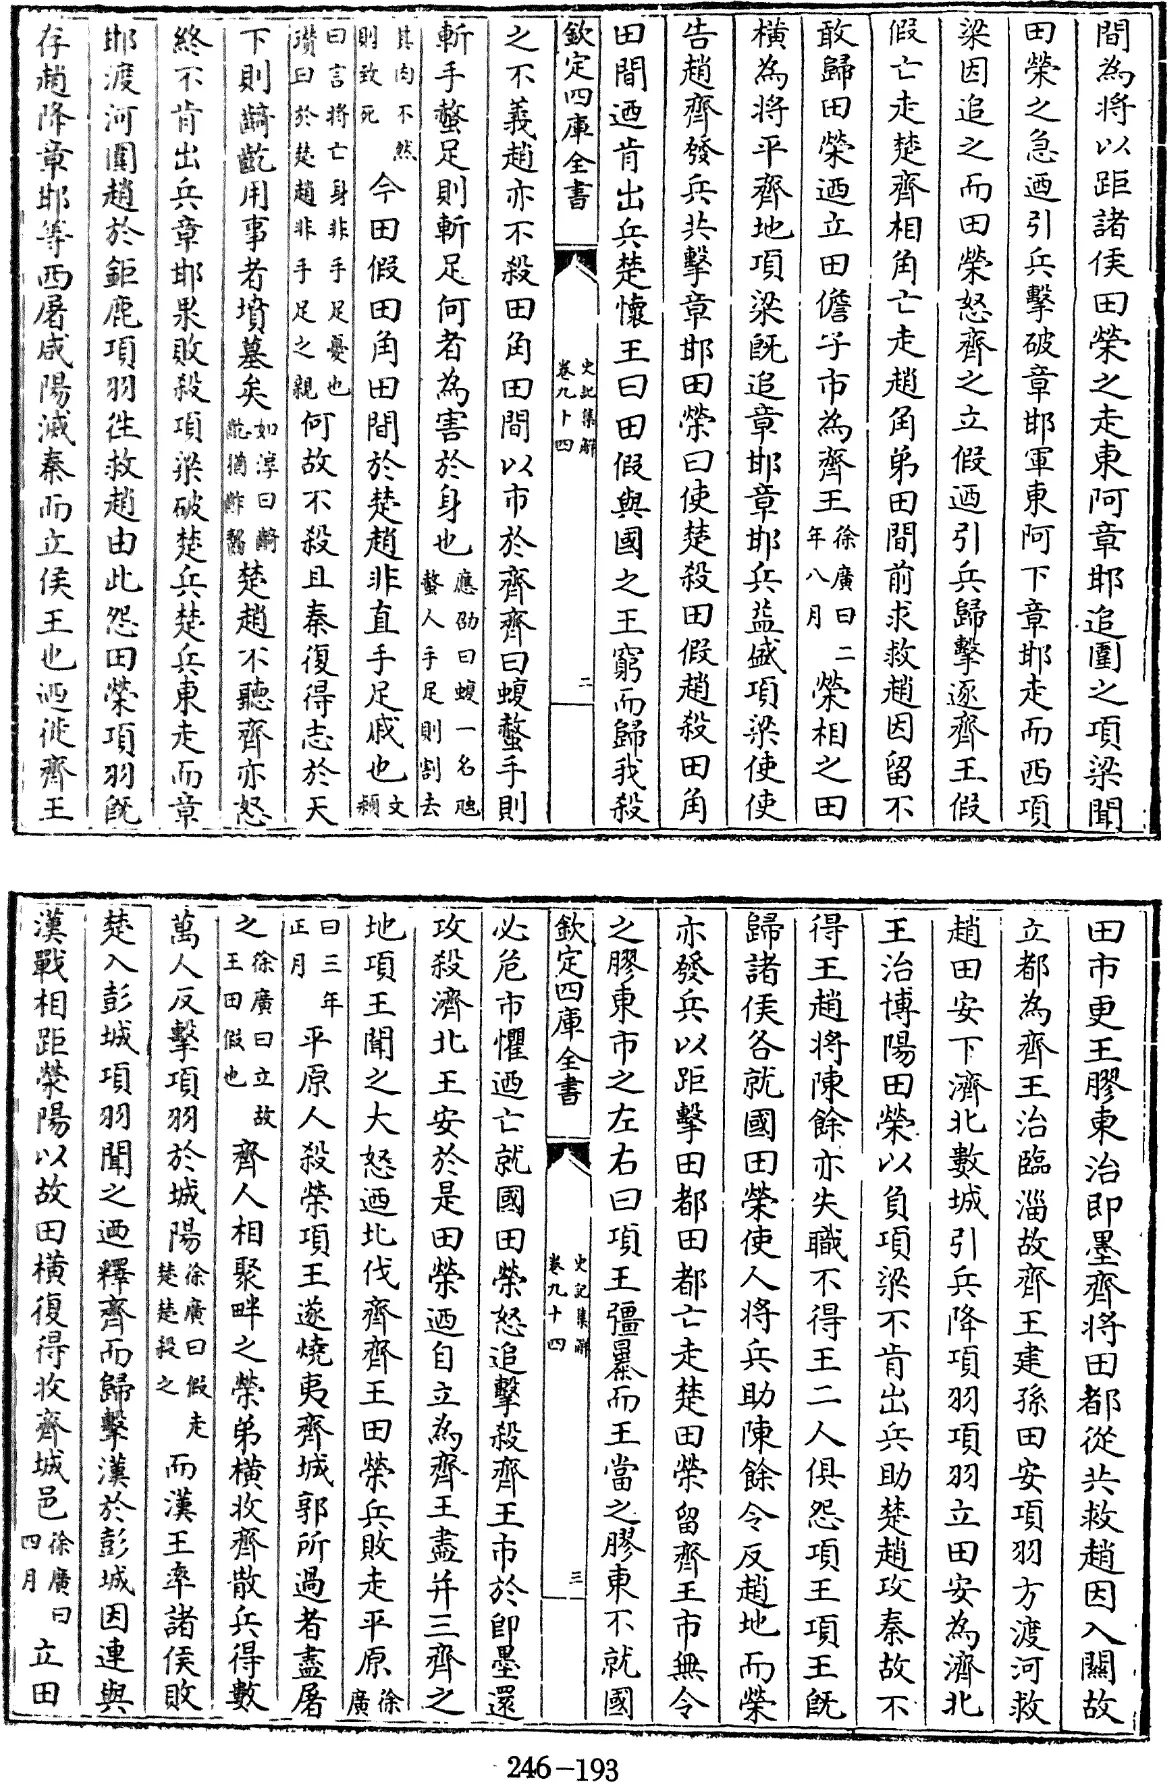 間為將以距諸侯田榮之走東阿章邯追圍之項梁聞
田榮之急迺引兵擊破章邯軍東阿下章邯走而西項
梁因追之而田榮怒齊之立假迺引兵歸擊逐齊王假
假亡走楚齊相角亡走趙角弟田間前求救趙因留不
敢歸田榮迺立田儋子市為齊王徐廣曰二年八月榮相之田
橫為將平齊地項梁既追章邯章邯兵益盛項梁使使
告趙齊發兵共擊章邯田榮曰使楚殺田假趙殺田角
田間迺肯出兵楚懷王曰田假與國之王窮而歸我殺
欽定四庫全書 史記集解卷九十四 二
之不義趙亦不殺田角田間以市於齊齊曰蝮螫手則
斬手螫足則斬足何者為害於身也應劭曰蝮一名虺螫人手足則割去
其肉不然則致死今田假田角田間於楚趙非直手足戚也文穎
曰言將亡身非手足憂也瓚曰於楚趙非手足之親何故不殺且秦復得志於天
下則齮齕用事者墳墓矣如淳曰齮齕猶齚齧楚趙不聽齊亦怒
終不肯出兵章邯果敗殺項梁破楚兵楚兵東走而章
邯渡河圍趙於鉅鹿項羽往救趙由此怨田榮項羽既
存趙降章邯等西屠咸陽滅秦而立侯王也迺徙齊王
田市更王膠東治即墨齊將田都從共救趙因入關故
立都為齊王治臨淄故齊王建孫田安項羽方渡河救
趙田安下濟北數城引兵降項羽項羽立田安為濟北
王治博陽田榮以負項梁不肯出兵助楚趙攻秦故不
得王趙將陳餘亦失職不得王二人俱怨項王項王既
歸諸侯各就國田榮使人將兵助陳餘令反趙地而榮
亦發兵以距擊田都田都亡走楚田榮留齊王市無令
之膠東市之左右曰項王彊暴而王當之膠東不就國
欽定四庫全書 史記集解卷九十四 三
必危市懼迺亡就國田榮怒追擊殺齊王市於即墨還
攻殺濟北王安於是田榮迺自立為齊王盡并三齊之
地項王聞之大怒迺北伐齊齊王田榮兵敗走平原徐廣
曰三年正月平原人殺榮項王遂燒夷齊城郭所過者盡屠
之徐廣曰立故王田假也齊人相聚畔之榮弟橫收齊散兵得數
萬人反擊項羽於城陽徐廣曰假走楚楚殺之而漢王率諸侯敗
楚入彭城項羽聞之迺釋齊而歸擊漢於彭城因連與
漢戰相距滎陽以故田橫復得收齊城邑徐廣曰四月立田
246-193